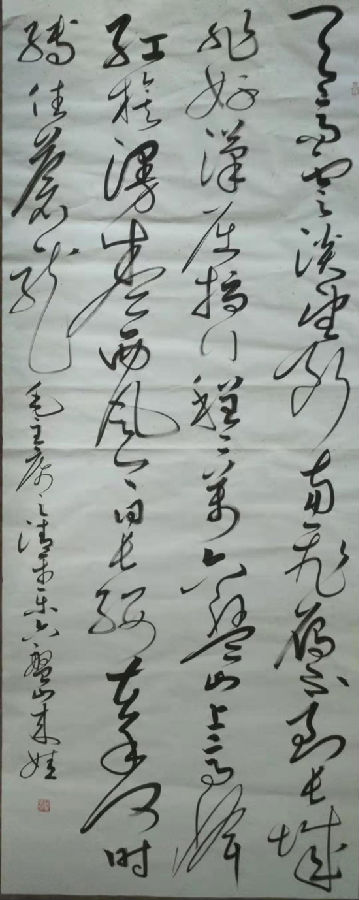 天高雲淡望断南飛雁不到长城
非好漢屈指行程二萬六盤山上高峰
红旗漫卷西风今日长缨在手何时
缚住蒼龙 毛主席之清平乐六盤山